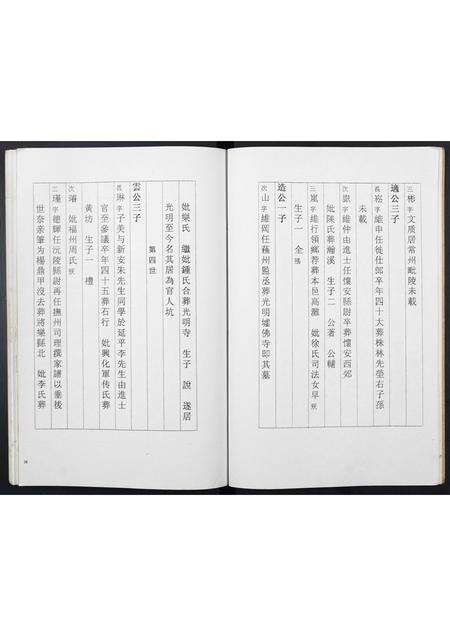 三彬字文质居常州毗陵未載
適公三子
長崧字維申任從仕郎卒年四十大葬株林先塋右子孫
未載
次嶽字維仲由進士任懷安縣尉卒葬懷安西郊
妣陳氏葬瀚溪 生子二 公著 公輔
三嵐字維行領鄉荐葬本邑高灘 妣徐氏司法女早殀
生子一 全殤
造公一子
次山字維岡任蘄州監丞葬光明墟佛寺即其墓
妣樂氏 繼妣鍾氏合葬光明寺 生子 說 遂居
光明至今名其居為官人坑
第四世
雲公三子
長琳字子美与新安朱先生同學於延平李先生由進士
官至參議卒年四十五葬石行 妣興化軍传氏葬
黃坊 生子一 禮
次璿 妣福州周氏殀
三瑾字德輝任沅陵縣尉再任撫州司理撰家譜以垂後
世奈亲筆为楊鼎甲沒去葬將樂縣北 妣李氏葬